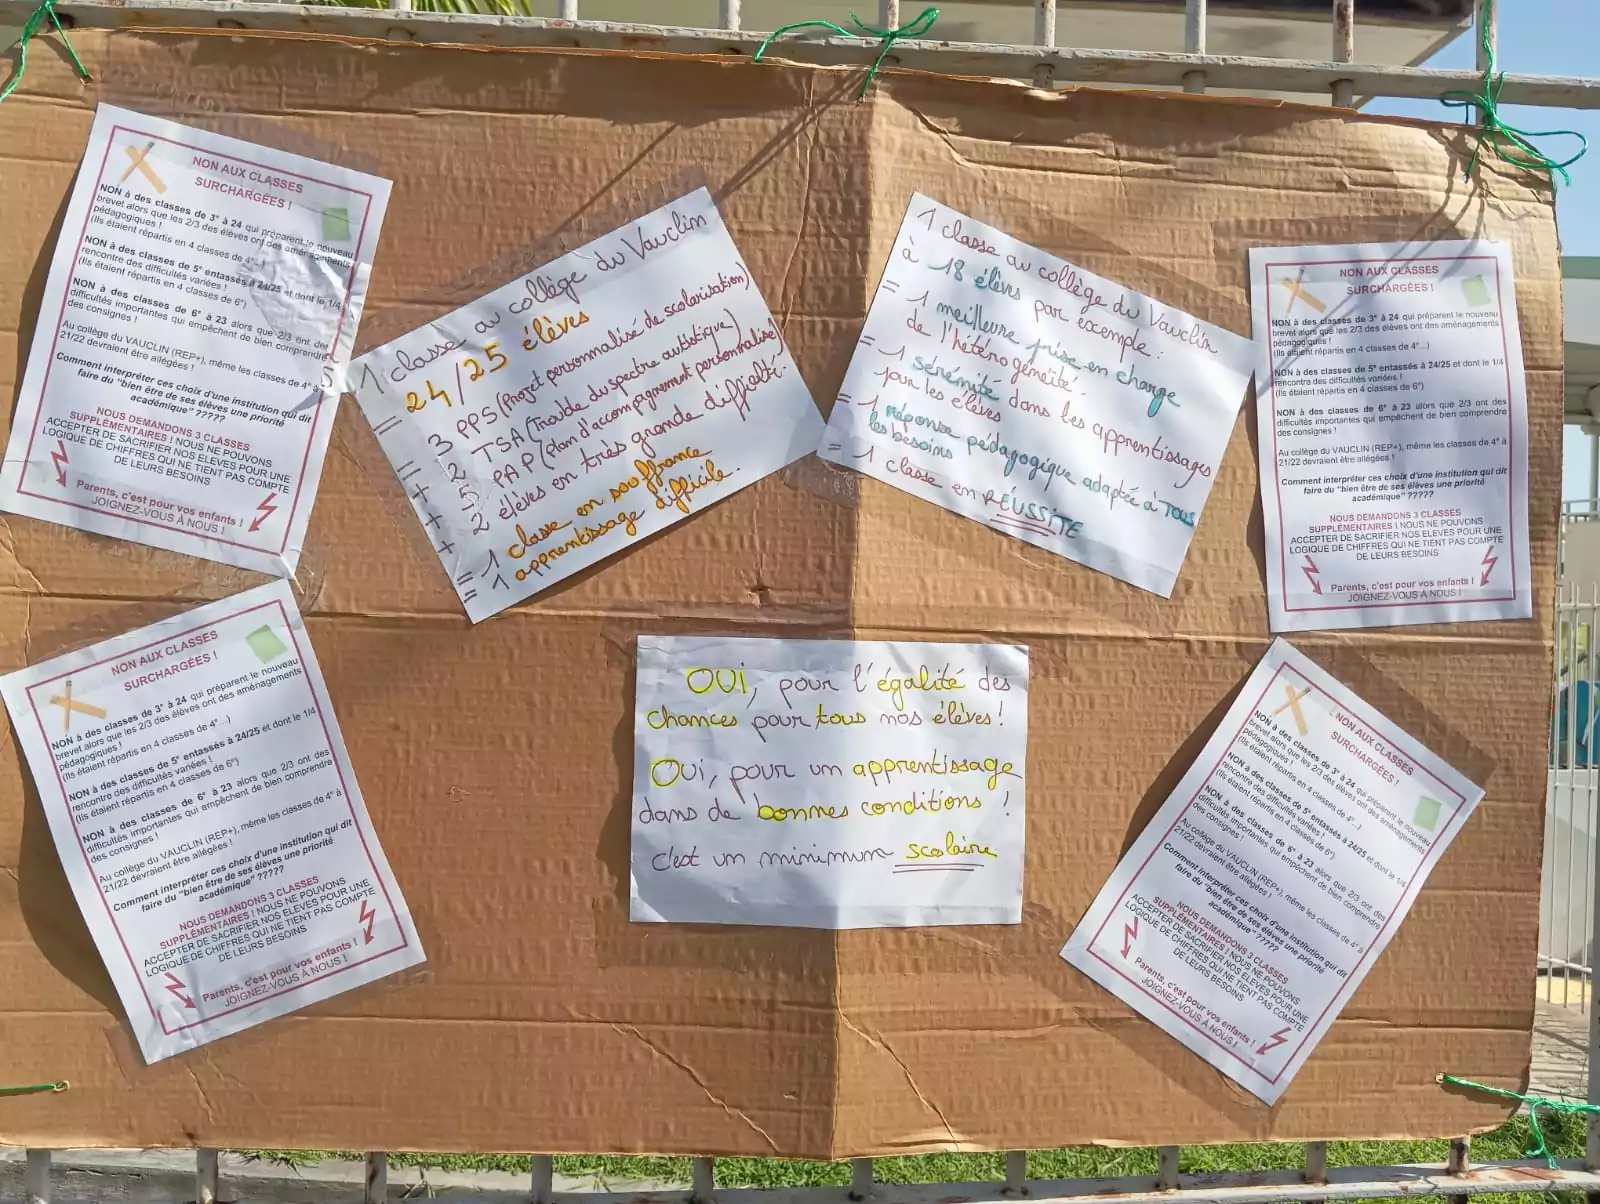 NON AUX CLASSES
SURCHARGÉES !
NON à des classes de 3° à 24 qui préparent le nouveau
brevet alors que les 2/3 des élèves ont des aménagements
pédagogiques !
(Ils étaient répartis en 4 classes de 4°...)
NON à des classes de 5° entassés à 24/25 et dont le 1/4
rencontre des difficultés variées !
(Ils étaient répartis en 4 classes de 6°)
NON à des classes de 6° à 23 alors que 2/3 ont des
difficultés importantes qui empêchent de bien comprendre
des consignes !
Au collège du VAUCLIN (REP+), même les classes de 4° à
21/22 devraient être allégées !
Comment interpréter ces choix d'une institution qui dit
faire du "bien être de ses élèves une priorité
académique" ?????
NOUS DEMANDONS 3 CLASSES
SUPPLÉMENTAIRES ! NOUS NE POUVONS
ACCEPTER DE SACRIFIER NOS ELEVES POUR UNE
LOGIQUE DE CHIFFRES QUI NE TIENT PAS COMPTE
DE LEURS BESOINS
Parents, c'est pour vos enfants !
JOIGNEZ-VOUS À NOUS !
1 classe au collège du Vauclin
= 24/25 élèves
= 3 PPS (Projet personnalisé de scolarisation)
+ 2 TSA (Trouble du spectre autistique)
+ 5 PAP (Plan d'accompagnement personnalisé)
+ 2 élèves en très grande difficulté.
= 1 classe en souffrance
= 1 apprentissage difficile.
1 classe au collège du Vauclin
à 18 élèves par exemple :
= 1 meilleure prise en charge
de l'hétérogénéité.
= 1 sérénité dans les apprentissages
pour les élèves
= 1 réponse pédagogique adaptée à TOUS
les besoins
= 1 classe en RÉUSSITE
NON AUX CLASSES
SURCHARGÉES !
NON à des classes de 3° à 24 qui préparent le nouveau
brevet alors que les 2/3 des élèves ont des aménagements
pédagogiques !
(Ils étaient répartis en 4 classes de 4°...)
NON à des classes de 5° entassés à 24/25 et dont le 1/4
rencontre des difficultés variées !
(Ils étaient répartis en 4 classes de 6°)
NON à des classes de 6° à 23 alors que 2/3 ont des
difficultés importantes qui empêchent de bien comprendre
des consignes !
Au collège du VAUCLIN (REP+), même les classes de 4° à
21/22 devraient être allégées !
Comment interpréter ces choix d'une institution qui dit
faire du "bien être de ses élèves une priorité
académique" ?????
NOUS DEMANDONS 3 CLASSES
SUPPLÉMENTAIRES ! NOUS NE POUVONS
ACCEPTER DE SACRIFIER NOS ELEVES POUR UNE
LOGIQUE DE CHIFFRES QUI NE TIENT PAS COMPTE
DE LEURS BESOINS
Parents, c'est pour vos enfants !
JOIGNEZ-VOUS À NOUS !
NON AUX CLASSES
SURCHARGÉES !
NON à des classes de 3° à 24 qui préparent le nouveau
brevet alors que les 2/3 des élèves ont des aménagements
pédagogiques !
(Ils étaient répartis en 4 classes de 4°...)
NON à des classes de 5° entassés à 24/25 et dont le 1/4
rencontre des difficultés variées !
(Ils étaient répartis en 4 classes de 6°)
NON à des classes de 6° à 23 alors que 2/3 ont des
difficultés importantes qui empêchent de bien comprendre
des consignes !
Au collège du VAUCLIN (REP+), même les classes de 4° à
21/22 devraient être allégées !
Comment interpréter ces choix d'une institution qui dit
faire du "bien être de ses élèves une priorité
académique" ?????
NOUS DEMANDONS 3 CLASSES
SUPPLÉMENTAIRES ! NOUS NE POUVONS
ACCEPTER DE SACRIFIER NOS ELEVES POUR UNE
LOGIQUE DE CHIFFRES QUI NE TIENT PAS COMPTE
DE LEURS BESOINS
Parents, c'est pour vos enfants !
JOIGNEZ-VOUS À NOUS !
OUI, pour l'égalité des
chances pour tous nos élèves !
Oui, pour un apprentissage
dans de bonnes conditions !
c'est un minimum scolaire
NON AUX CLASSES
SURCHARGÉES !
NON à des classes de 3° à 24 qui préparent le nouveau
brevet alors que les 2/3 des élèves ont des aménagements
pédagogiques !
(Ils étaient répartis en 4 classes de 4°...)
NON à des classes de 5° entassés à 24/25 et dont le 1/4
rencontre des difficultés variées !
(Ils étaient répartis en 4 classes de 6°)
NON à des classes de 6° à 23 alors que 2/3 ont des
difficultés importantes qui empêchent de bien comprendre
des consignes !
Au collège du VAUCLIN (REP+), même les classes de 4° à
21/22 devraient être allégées !
Comment interpréter ces choix d'une institution qui dit
faire du "bien être de ses élèves une priorité
académique" ?????
NOUS DEMANDONS 3 CLASSES
SUPPLÉMENTAIRES ! NOUS NE POUVONS
ACCEPTER DE SACRIFIER NOS ELEVES POUR UNE
LOGIQUE DE CHIFFRES QUI NE TIENT PAS COMPTE
DE LEURS BESOINS
Parents, c'est pour vos enfants !
JOIGNEZ-VOUS À NOUS !